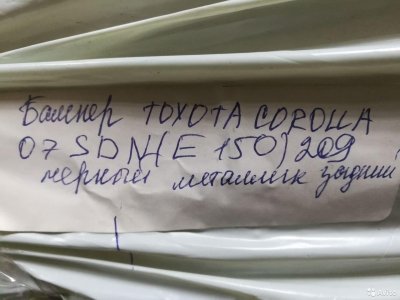 Бампер TOYOTA COROLLA
07 SDN(E 150) 209
черный металлик задний
Avito